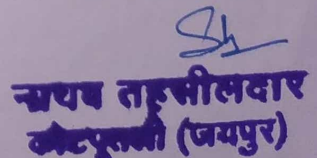 नायब तहसीलदार
कोटपूतली (जयपुर)